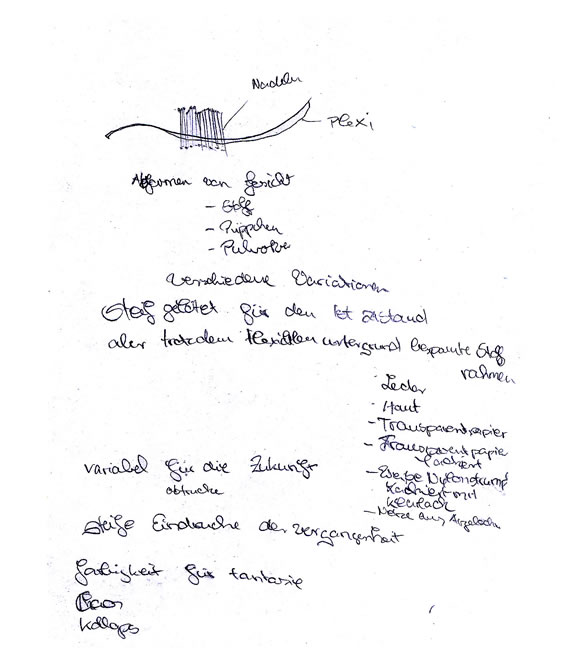 Nadeln
Plexi
Abformen von Gesicht
- Stoff
- Püppchen
verschiedene Variationen
Steif gelötet für den Ist zustand
aber trotzdem flexiblen untergrund bespannte Stoff
rahmen
- Leder
- Haut
- Transparentpapier
- Transparentpapie
lackiert
- Weiße Nylonstrumpf
Kaschiert mit
Klarlack
- Netze aus
variabel für die Zukunft
abdrucke
steife Eindrücke der Vergangenheit
für fantasie
Kollaps